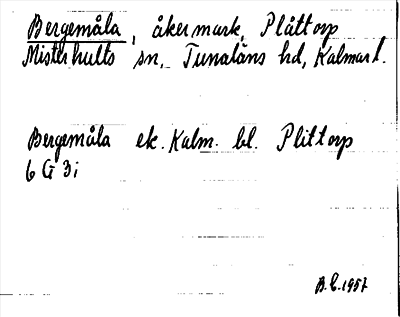 Bergemåla, åkermark, Plåttorp
Misterhults sn, Tunaläns hd, Kalmar l.
Bergemåla ek. Kalm. bl. Plittorp
6 G 3i
B.E. 1957